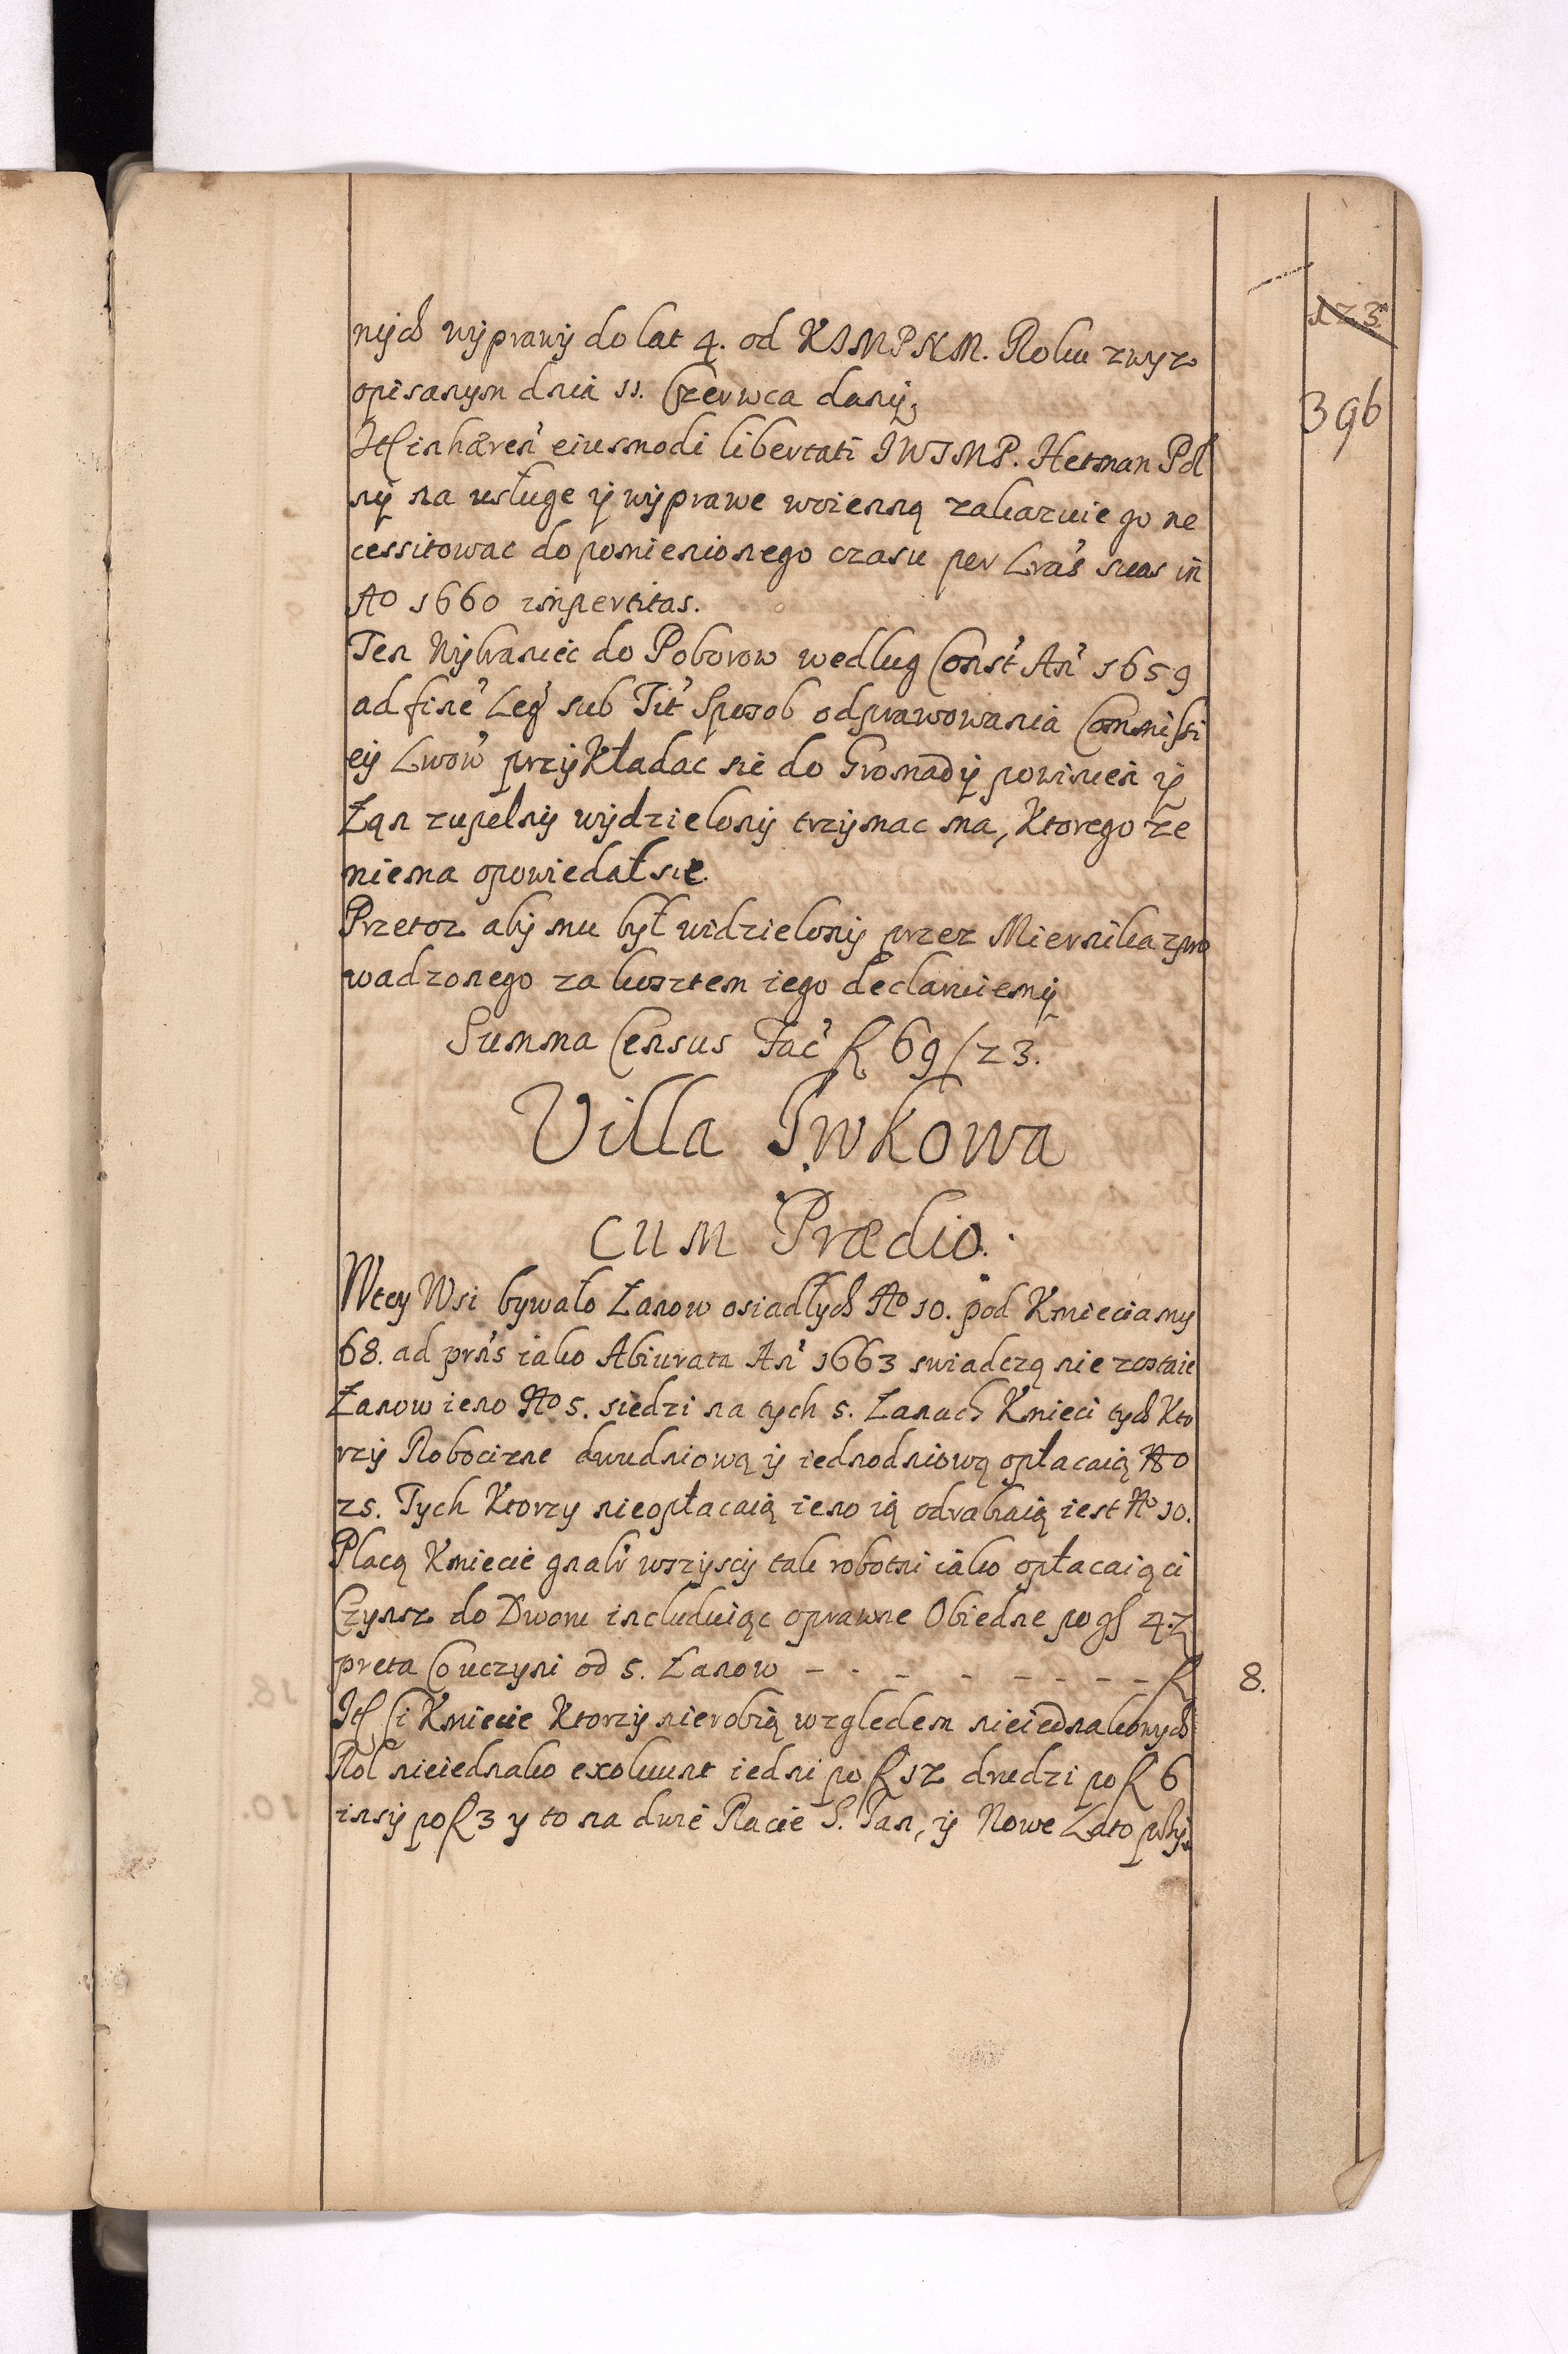 123
396
nÿch wÿprawÿ do lat 4. od KJMPNM. Roku zwyz
opisanym dnia 11. Czerwca danÿ,
Itt inhæren' eiusmodi libertati JWJMP. Hetman Pol
nÿ na usługe ÿ wÿprawe woienną zakazuie go ne
cessitowac do pomienionego czasu per Lras' suas in
Aº 1660 impertitas.
Ten Wÿbraniec do Poborow wedlug Const' An' 1659
ad fine' Leg' sub Tit' Sposob odprawowania Commissi
eÿ Lwow' przÿkładac sie do Gromadÿ powinien ÿ
Łan zupelnÿ wÿdzielonÿ trzÿmac ma, Ktorego ze
niema opowiedał sie.
Przetoz abÿ mu był widzielonÿ przez Miernika zpro
wadzonego za kosztem iego declaruiemÿ
Summa Census Fac' f 69/23.
Villa Iwkowa
cum Prædio.
W tey Wsi bywało Łanow osiadłych Nº 10. pod Kmieciamy
68. ad prn's iako Abiurata An' 1663 swiadczą nie zostaie
Łanow ieno Nº 5. siedzi na tych 5. Łanach Kmieci tych Kto
rzÿ Robocizne dwudniową ÿ iednodniową opłacaią Nº
25. Tych Ktorzy nieopłacaią ieno ią odrabiaią iest Nº 10.
Placą Kmiecie gnalr' wszÿscÿ tak robotni iako opłacaiąci
Czynsz do Dworu includuiąc oprawne Obiedne po gr 42
preta Co uczyni od 5. Łanow - - - - - - - - f 8.
Itt Ci Kmiecie Ktorzÿ nierobią względem nieiednakowych
Rol nieiednako exolvunt iedni po f 12 drudzi po f 6
insÿ po f 3 y to na dwie Racie S. Jan, ÿ Nowe Lato